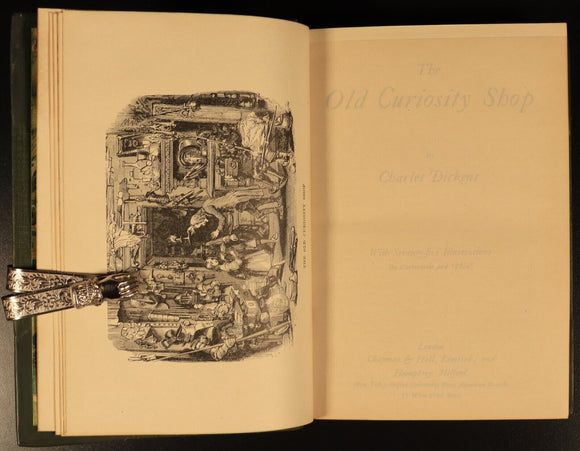 THE OLD CURIOSITY SHOP
The
Old Curiosity Shop
by
Charles Dickens
With Seventy-five Illustrations
By Cattermole and "Phiz"
London
Chapman & Hall, Limited, and
Humphrey Milford
New York: Oxford University Press, American Branch
35 West 32nd Street